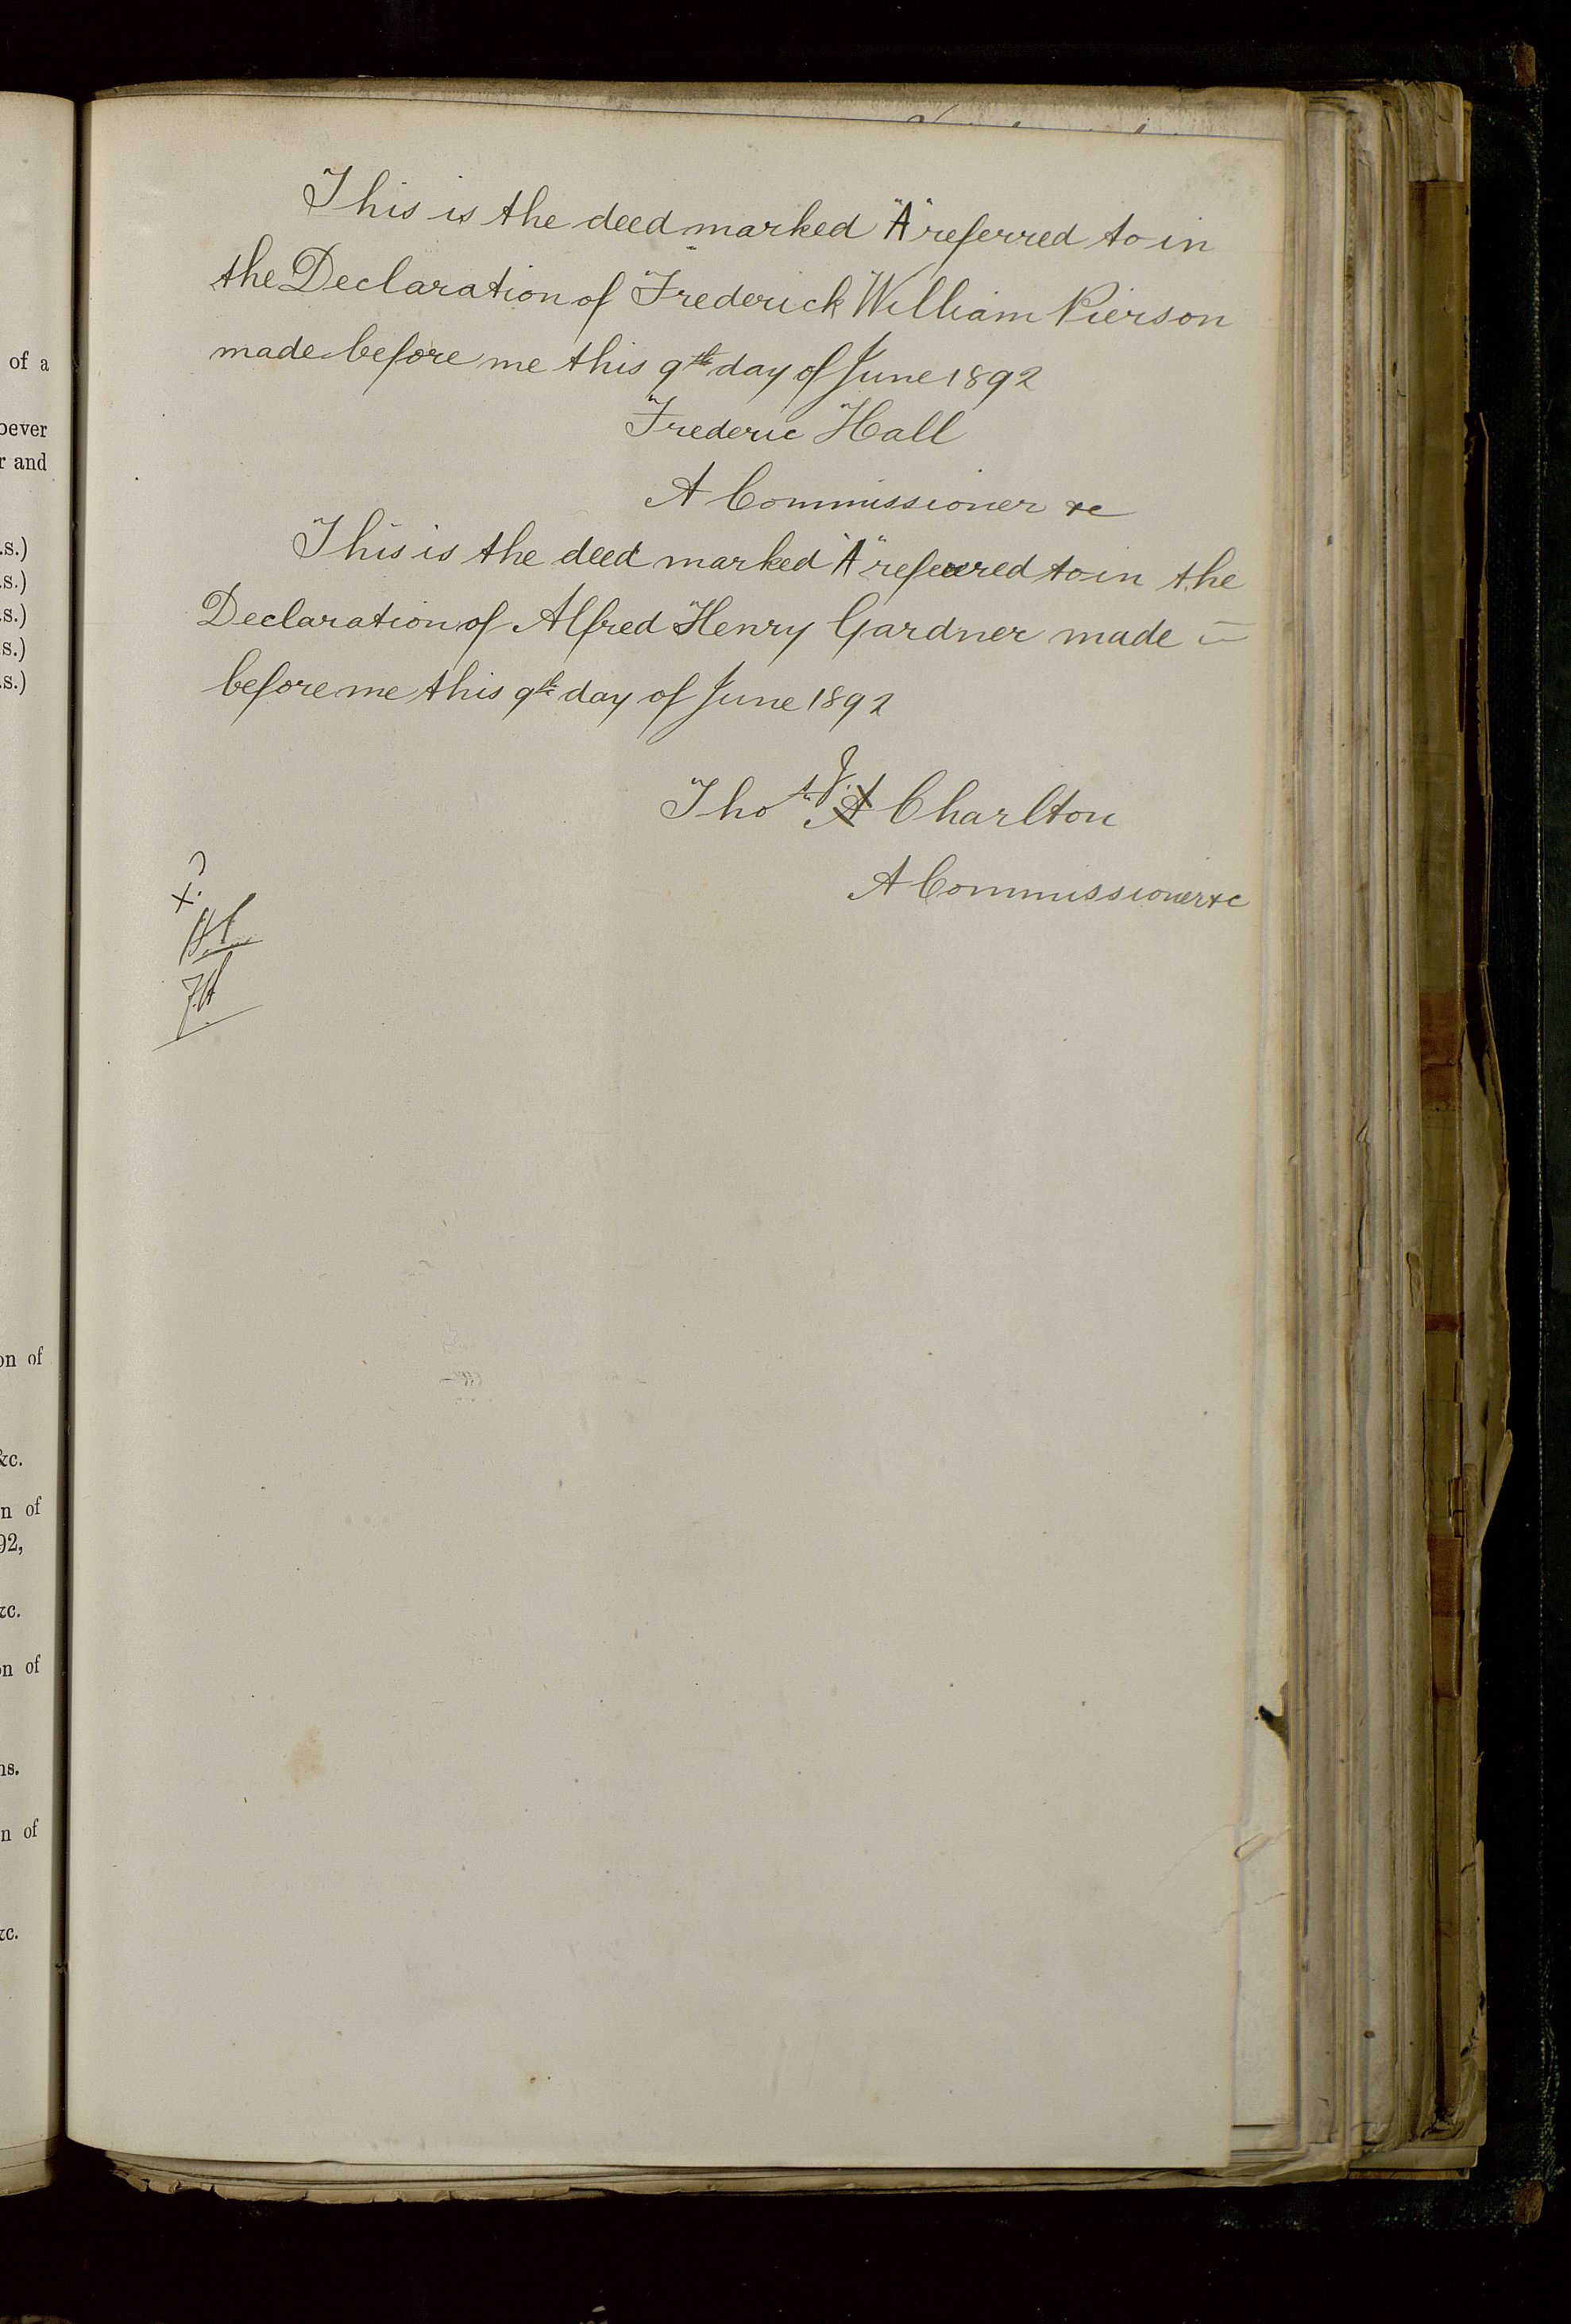 This is the deed marked "A" referred to in
the Declaration of Frederick William Pierson
made before me this 9th day of June 1892
Frederic Hall
A Commissioner &c
This is the deed marked "A" referred to in the
Declaration of Alfred Henry Gardner made
before me this 9th day of June 1892
Thos J. A Charlton
A Commissioner &c
of a
oever
r and
.s.)
.s.)
.s.)
.s.)
.s.)
on of
&c.
n of
92,
&c.
on of
ns.
n of
&c.